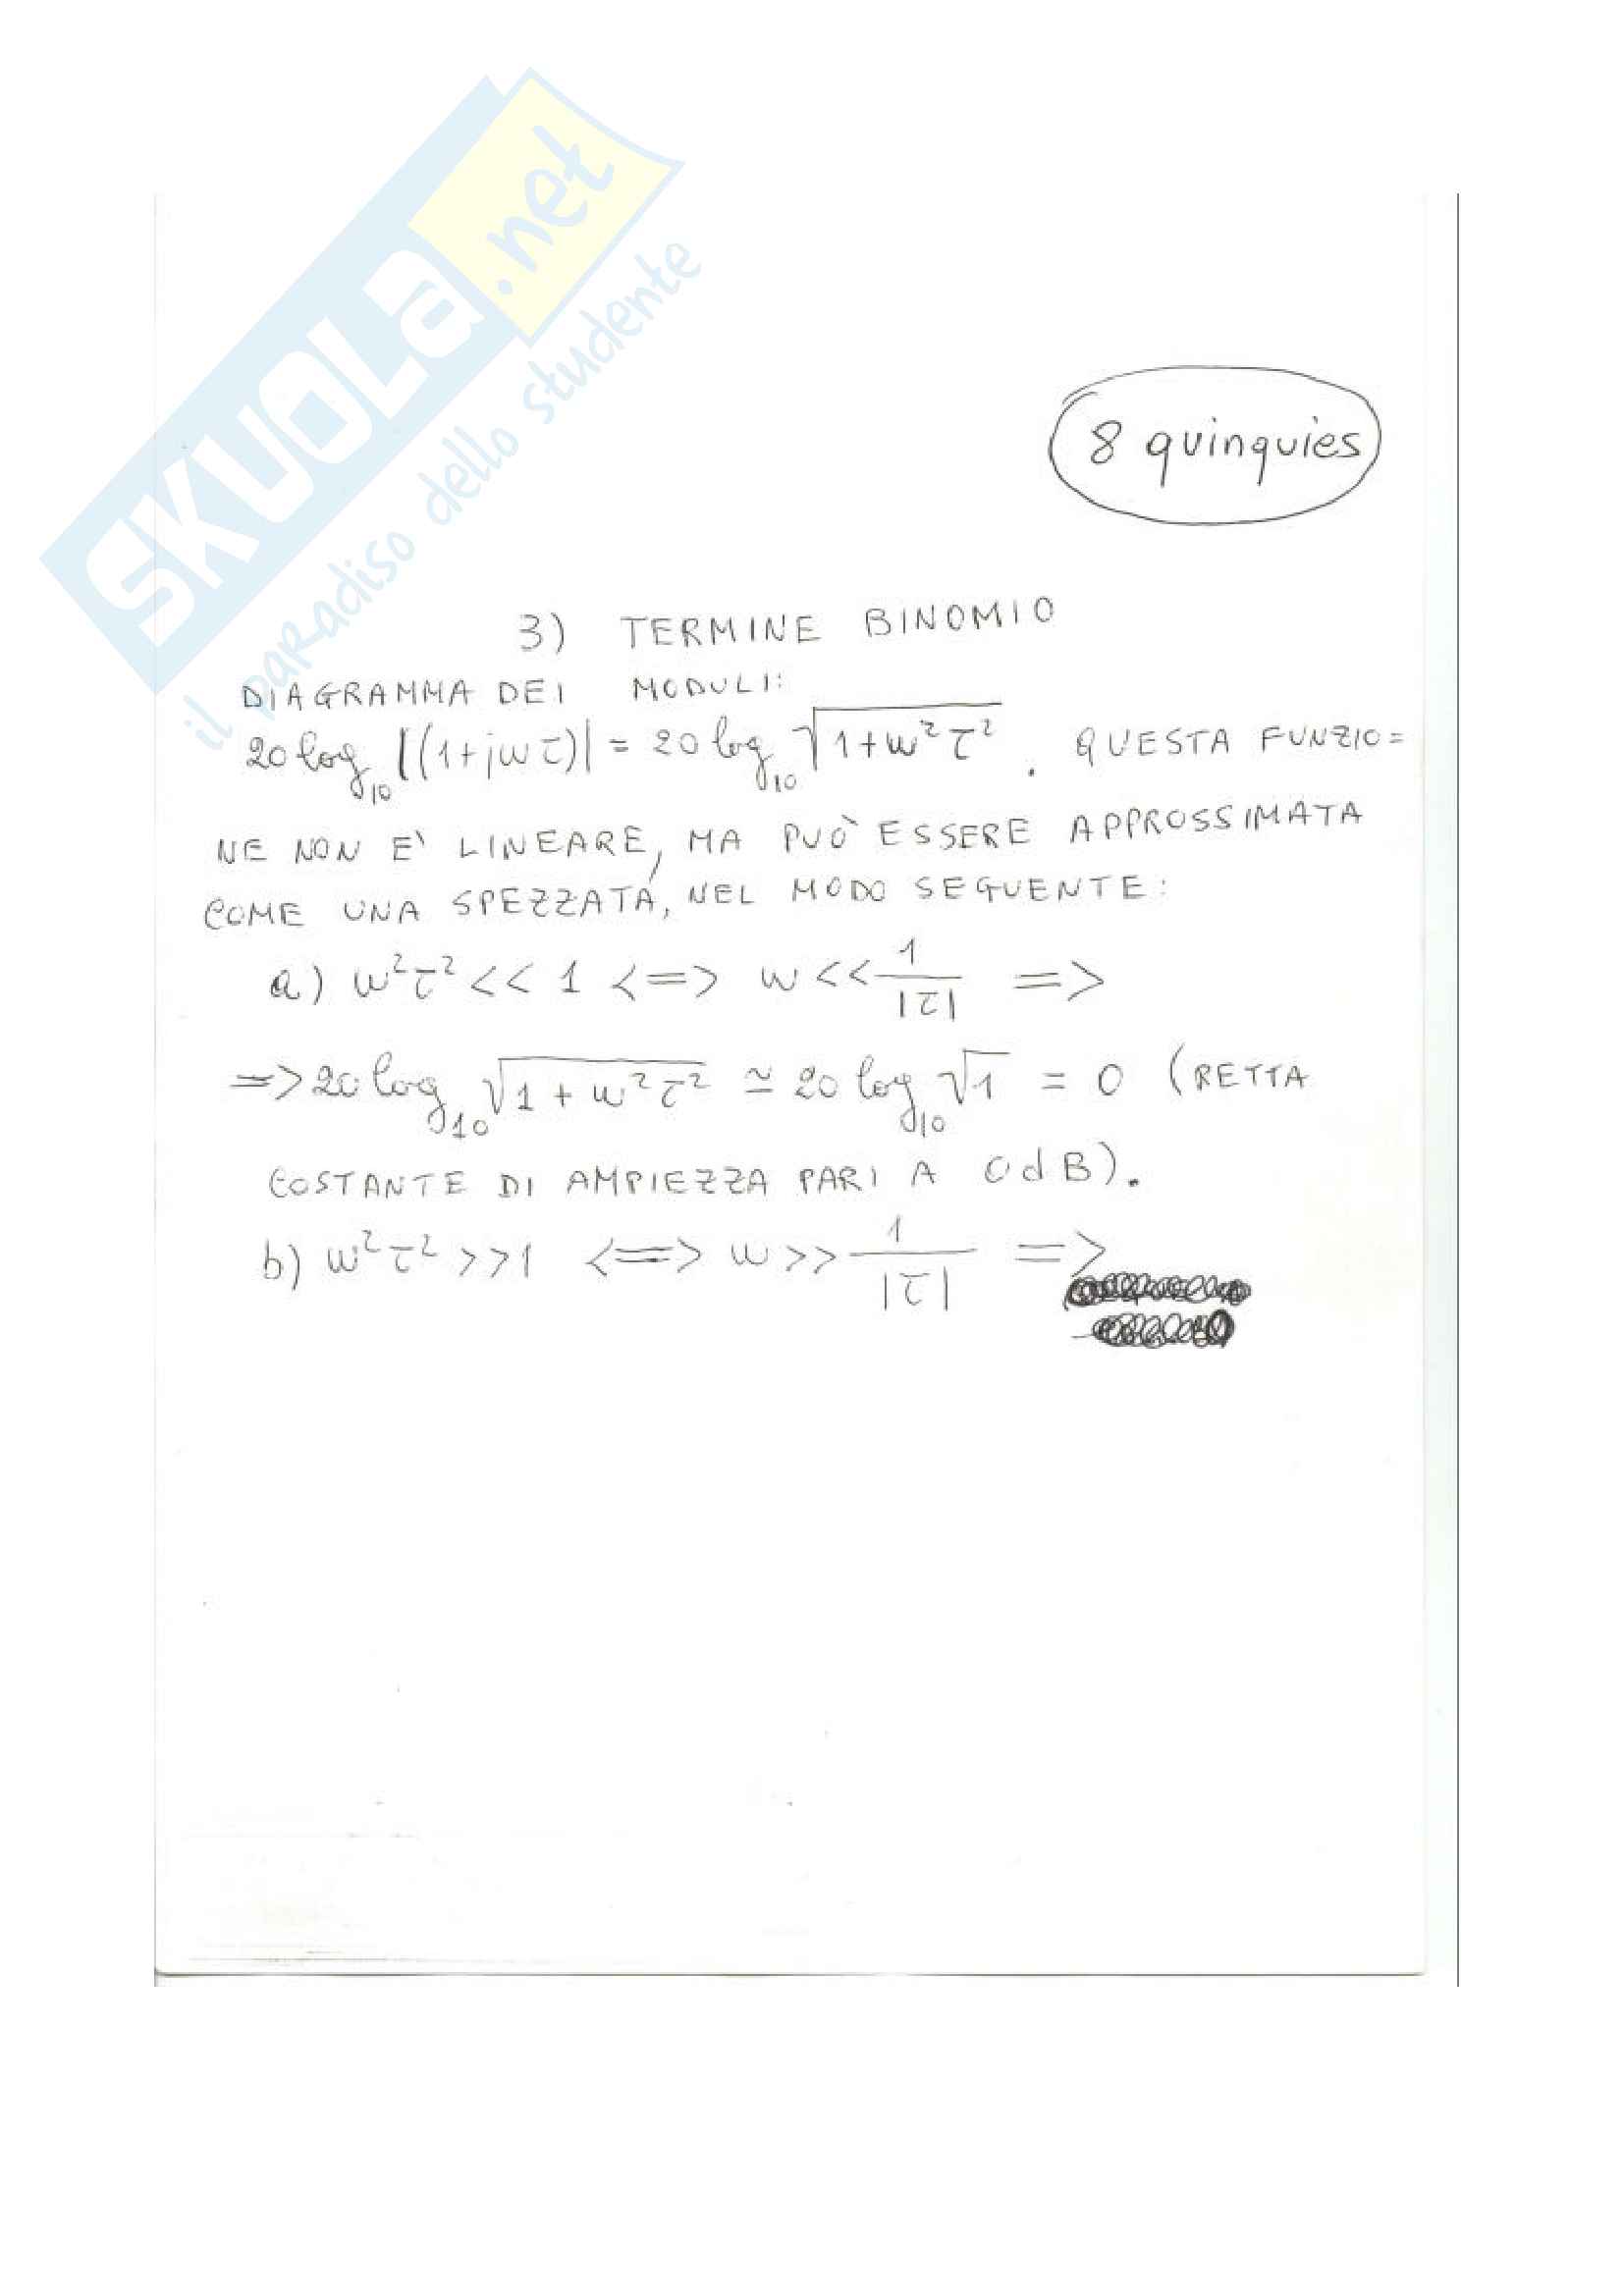 SKUOLa.net
il paradiso dello studente
8 quinquies
3) TERMINE BINOMIO
DIAGRAMMA DEI MODULI:
20 log₁₀ |(1+jωτ)| = 20 log₁₀ √(1+ω²τ²). QUESTA FUNZIO=
NE NON E' LINEARE, MA PUÒ ESSERE APPROSSIMATA
COME UNA SPEZZATA, NEL MODO SEGUENTE:
a) ω²τ² << 1 <=> ω << 1/|τ| =>
=> 20 log₁₀ √(1+ω²τ²) ≃ 20 log₁₀ √1 = 0 (RETTA
COSTANTE DI AMPIEZZA PARI A 0dB).
b) ω²τ² >> 1 <=> ω >> 1/|τ| =>